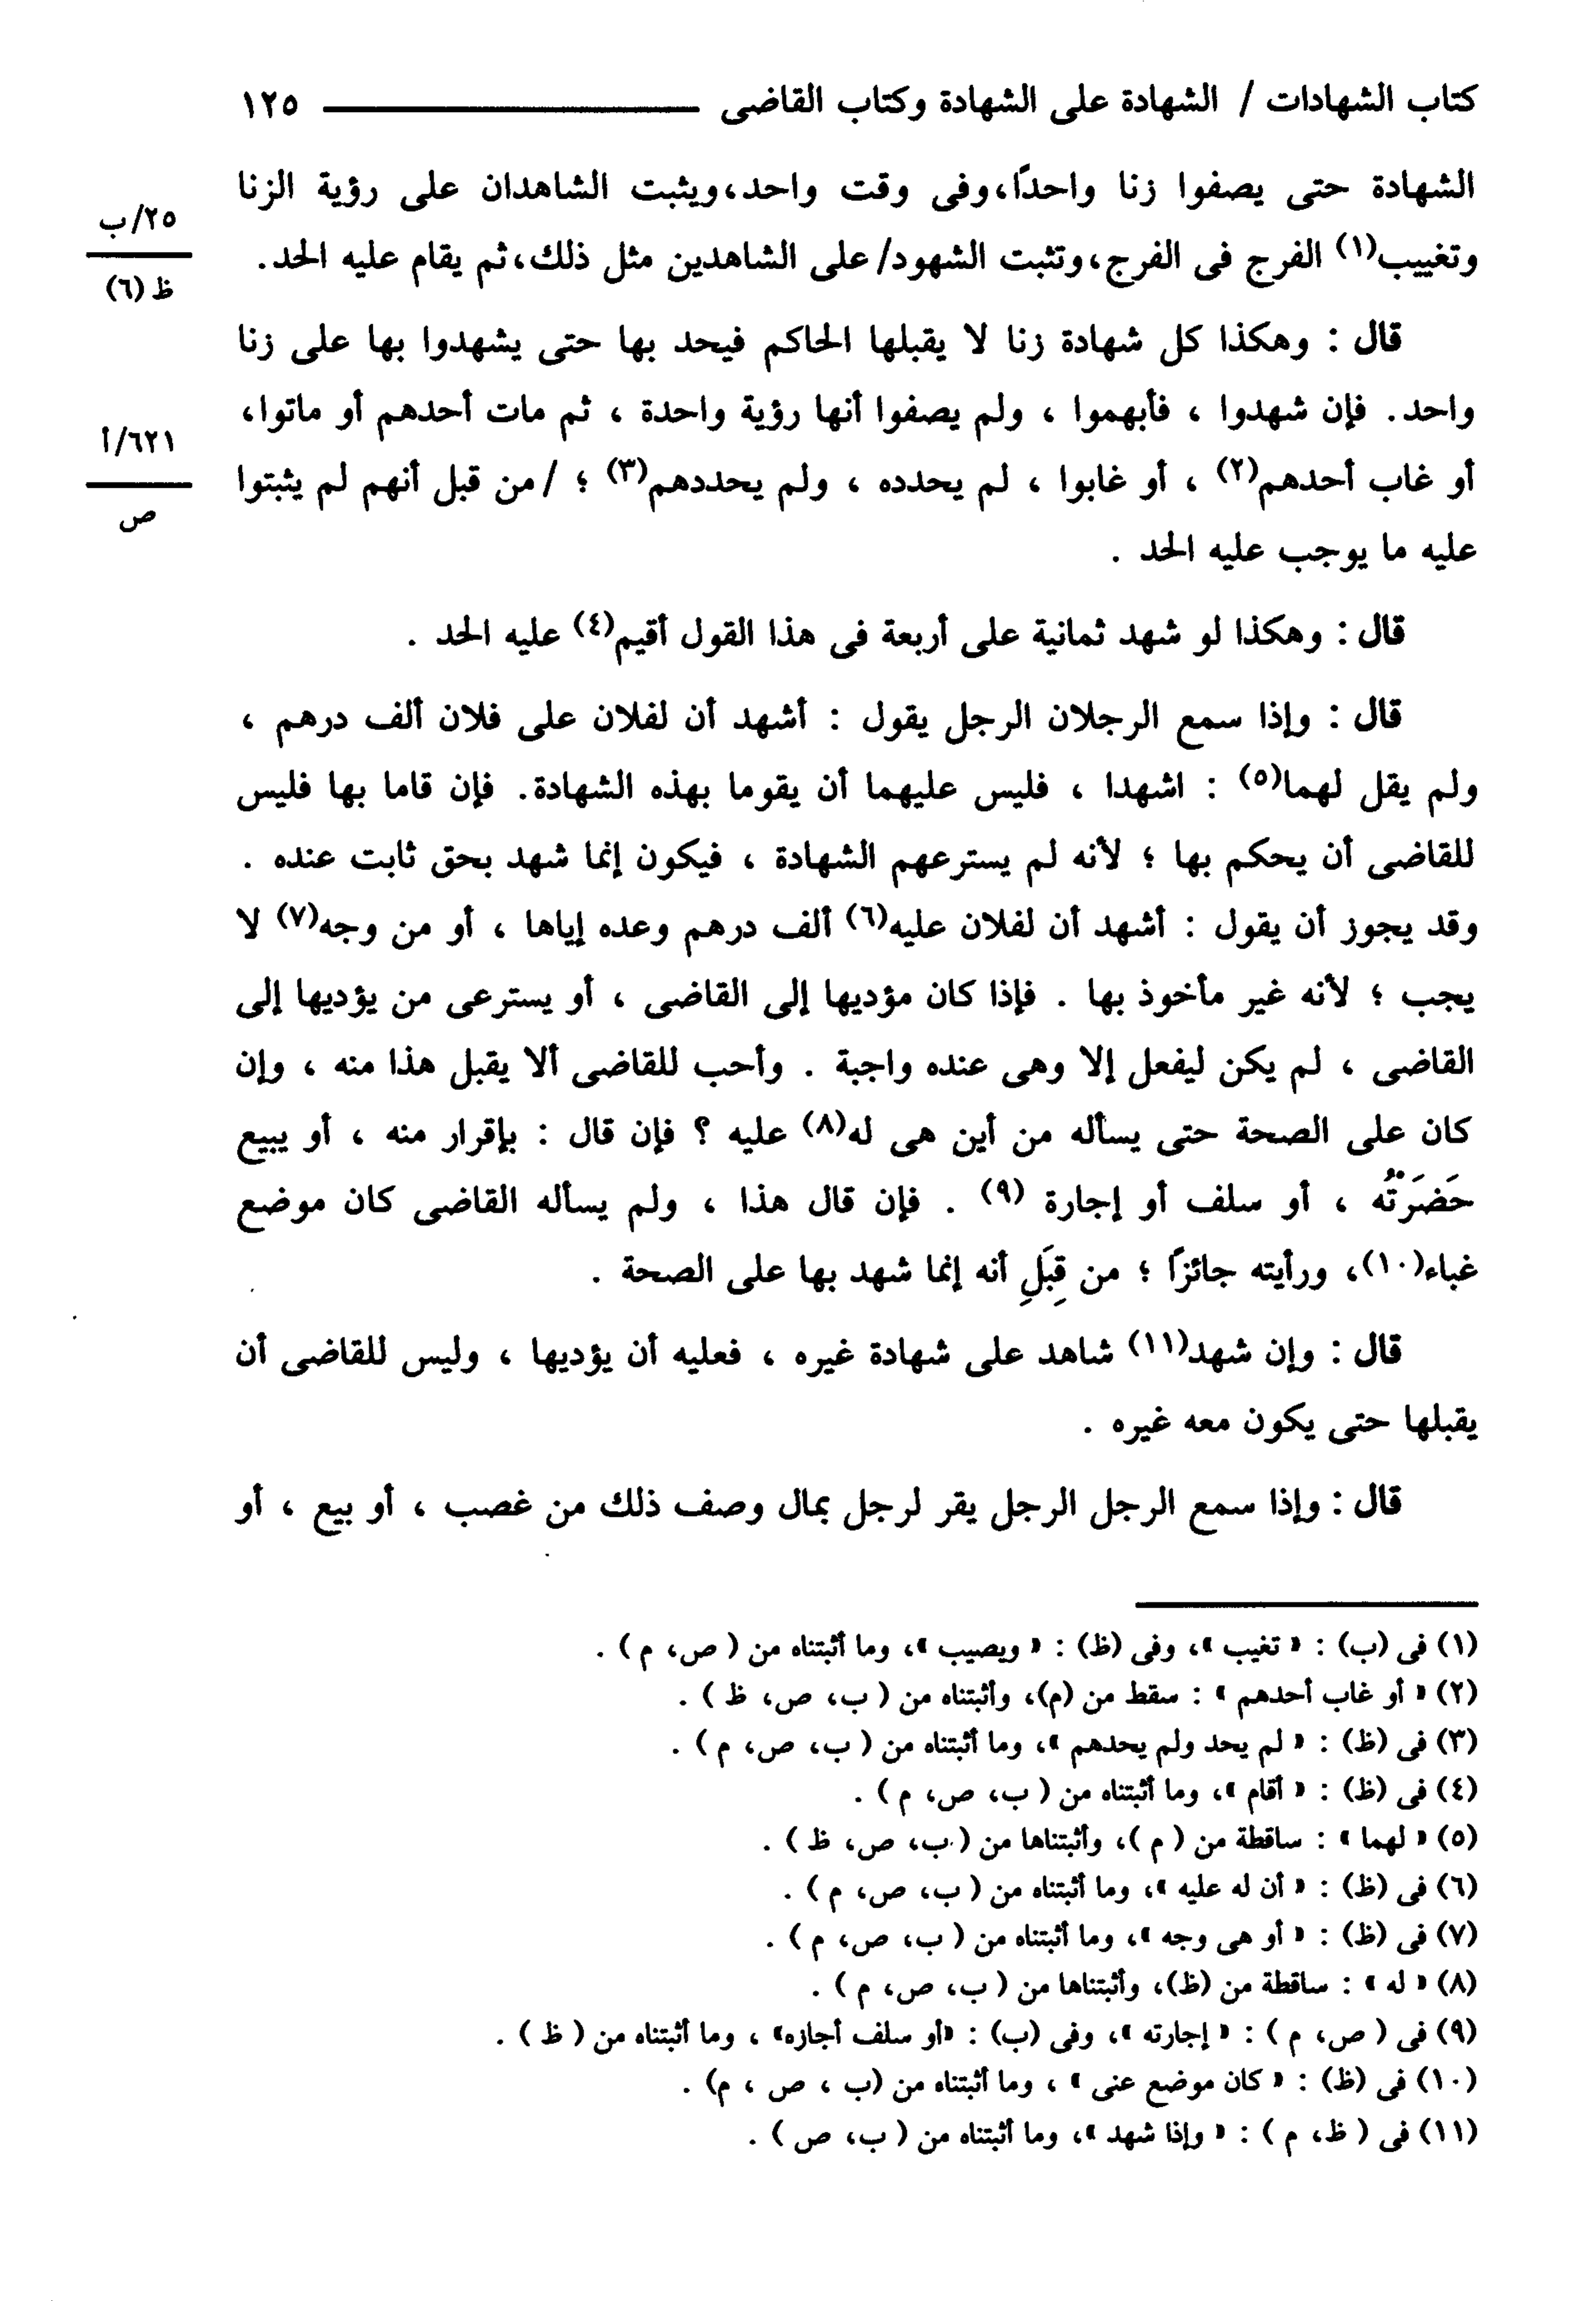 كتاب الشهادات / الشهادة على الشهادة وكتاب القاضى ١٢٥
الشهادة حتى يصفوا زنا واحدًا،وفى وقت واحد،ويثبت الشاهدان على رؤية الزنا
وتغييب(١) الفرج فى الفرج،وتثبت الشهود/على الشاهدين مثل ذلك،ثم يقام عليه الحد.
٢٥/ب
ظ (٦)
قال : وهكذا كل شهادة زنا لا يقبلها الحاكم فيحد بها حتى يشهدوا بها على زنا
واحد. فإن شهدوا ، فأبهموا ، ولم يصفوا أنها رؤية واحدة ، ثم مات أحدهم أو ماتوا،
أو غاب أحدهم(٢) ، أو غابوا ، لم يحدده ، ولم يحددهم(٣) ؛ /من قبل أنهم لم يثبتوا
٦٢١/أ
ص
عليه ما يوجب عليه الحد .
قال : وهكذا لو شهد ثمانية على أربعة فى هذا القول أقيم(٤) عليه الحد .
قال : وإذا سمع الرجلان الرجل يقول : أشهد أن لفلان على فلان ألف درهم ،
ولم يقل لهما(٥) : اشهدا ، فليس عليهما أن يقوما بهذه الشهادة. فإن قاما بها فليس
للقاضى أن يحكم بها ؛ لأنه لم يسترعهم الشهادة ، فيكون إنما شهد بحق ثابت عنده .
وقد يجوز أن يقول : أشهد أن لفلان عليه(٦) ألف درهم وعده إياها ، أو من وجه(٧) لا
يجب ؛ لأنه غير مأخوذ بها . فإذا كان مؤديها إلى القاضى ، أو يسترعى من يؤديها إلى
القاضى ، لم يكن ليفعل إلا وهى عنده واجبة . وأحب للقاضى ألا يقبل هذا منه ، وإن
كان على الصحة حتى يسأله من أين هى له(٨) عليه ؟ فإن قال : بإقرار منه ، أو ببيع
حَضَرْتُه ، أو سلف أو إجارة (٩) . فإن قال هذا ، ولم يسأله القاضى كان موضع
غباء(١٠)، ورأيته جائزًا ؛ من قِبَلِ أنه إنما شهد بها على الصحة .
قال : وإن شهد(١١) شاهد على شهادة غيره ، فعليه أن يؤديها ، وليس للقاضى أن
يقبلها حتى يكون معه غيره .
قال : وإذا سمع الرجل الرجل يقر لرجل بمال وصف ذلك من غصب ، أو بيع ، أو
(١) فى (ب) : « تغيب »، وفى (ظ) : « ويصيب »، وما أثبتناه من ( ص، م ) .
(٢) « أو غاب أحدهم » : سقط من (م)، وأثبتناه من ( ب، ص، ظ ) .
(٣) فى (ظ) : « لم يحد ولم يحدهم »، وما أثبتناه من ( ب، ص، م ) .
(٤) فى (ظ) : « أقام »، وما أثبتناه من ( ب، ص، م ) .
(٥) « لهما » : ساقطة من ( م )، وأثبتناها من ( ب، ص، ظ ) .
(٦) فى (ظ) : « أن له عليه »، وما أثبتناه من ( ب، ص، م ) .
(٧) فى (ظ) : « أو هى وجه »، وما أثبتناه من ( ب، ص، م ) .
(٨) « له » : ساقطة من (ظ)، وأثبتناها من ( ب، ص، م ) .
(٩) فى ( ص، م ) : « إجارته »، وفى (ب) : «أو سلف أجازه» ، وما أثبتناه من ( ظ ) .
(١٠) فى (ظ) : « كان موضع عنى » ، وما أثبتناه من (ب ، ص ، م) .
(١١) فى ( ظ، م ) : « وإذا شهد »، وما أثبتناه من ( ب، ص ) .